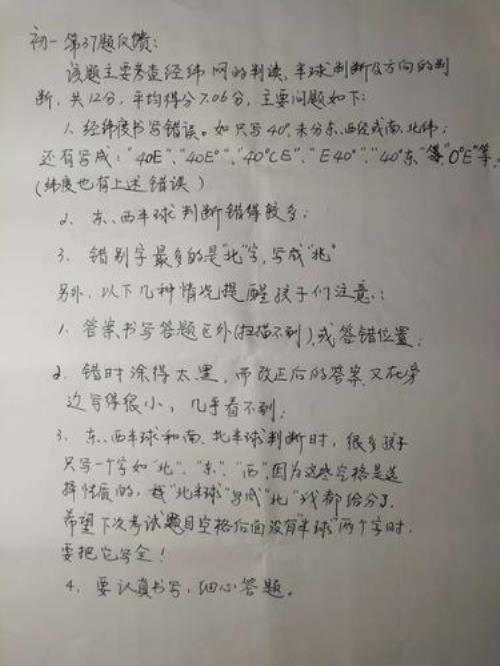 初一第37题反馈:
该题主要考查经纬网的判读,半球判断及方向的判
断,共12分,平均得分7.06分,主要问题如下:
1. 经纬度书写错误。如只写40°,未分东、西经或南、北纬;
还有写成:"40E"、"40E°"、"40°CE"、"E40°"、"40°东"等、"0°E"等.
(纬度也有上述错误)
2. 东、西半球判断错得较多;
3. 错别字最多的是"北"字,写成"兆"
另外,以下几种情况提醒孩子们注意:
1. 答案书写答题区外(扫描不到),或答错位置;
2. 错时涂得太黑,而改正后的答案又在旁
边写得很小,几乎看不到;
3. 东、西半球和南、北半球判断时,很多孩子
只写一个字如"北"、"东"、"西",因为这些空格是选
择性质的,"北半球"写成"北"我都给分了.
希望下次考试题目空格后面没有"半球"两个字时,
要把它写全!
4. 要认真书写,细心答题。